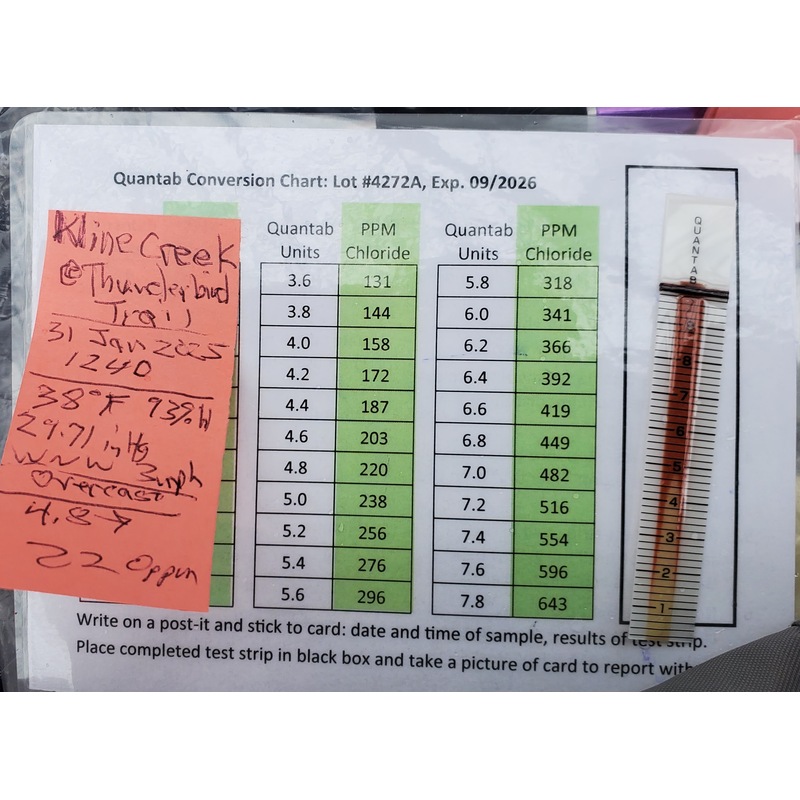 Quantab Conversion Chart: Lot #4272A, Exp. 09/2026
Kline Creek
@ Thunderbird
Trail
31 Jan 2025
1240
38°F 93%H
29.71 inHg
WNW 3mph
Overcast
4.8→
220ppm
Quantab Units PPM Chloride
3.6 131
3.8 144
4.0 158
4.2 172
4.4 187
4.6 203
4.8 220
5.0 238
5.2 256
5.4 276
5.6 296
Quantab Units PPM Chloride
5.8 318
6.0 341
6.2 366
6.4 392
6.6 419
6.8 449
7.0 482
7.2 516
7.4 554
7.6 596
7.8 643
QUANTAB
8
7
6
5
4
3
2
1
Write on a post-it and stick to card: date and time of sample, results of test strip.
Place completed test strip in black box and take a picture of card to report with